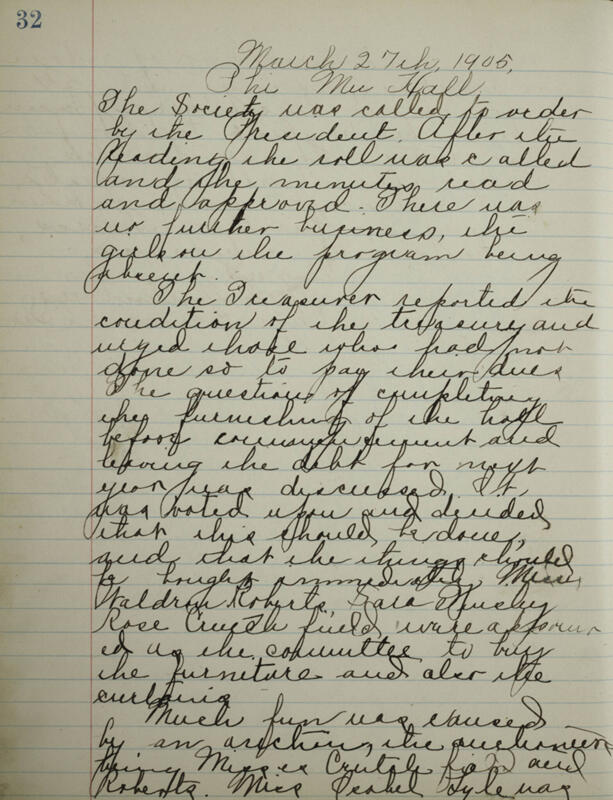 32
March 27th, 1905,
Phi Mu Hall
The Society was called to order
by the President. After the
Reading the roll was called
and the minutes read
and approved. There was
no further business, the
girls on the program being
absent.
The Treasurer reported the
condition of the treasury and
urged those who had not
done so to pay their dues
The question of completing
the furnishing of the hall
before commencement and
leaving the debt for next
year was discussed. It
was voted upon and decided
that this should be done,
and that the things should
be bought immediately. Misses
Waldrin Roberts, Sara
Rose Crutchfield were appoint
ed as the committee to buy
the furniture and also the
curtains
Much fun was caused
by an auction, the auctioneers
being Misses Crutchfield and
Roberts. Miss Isabel Lyle was